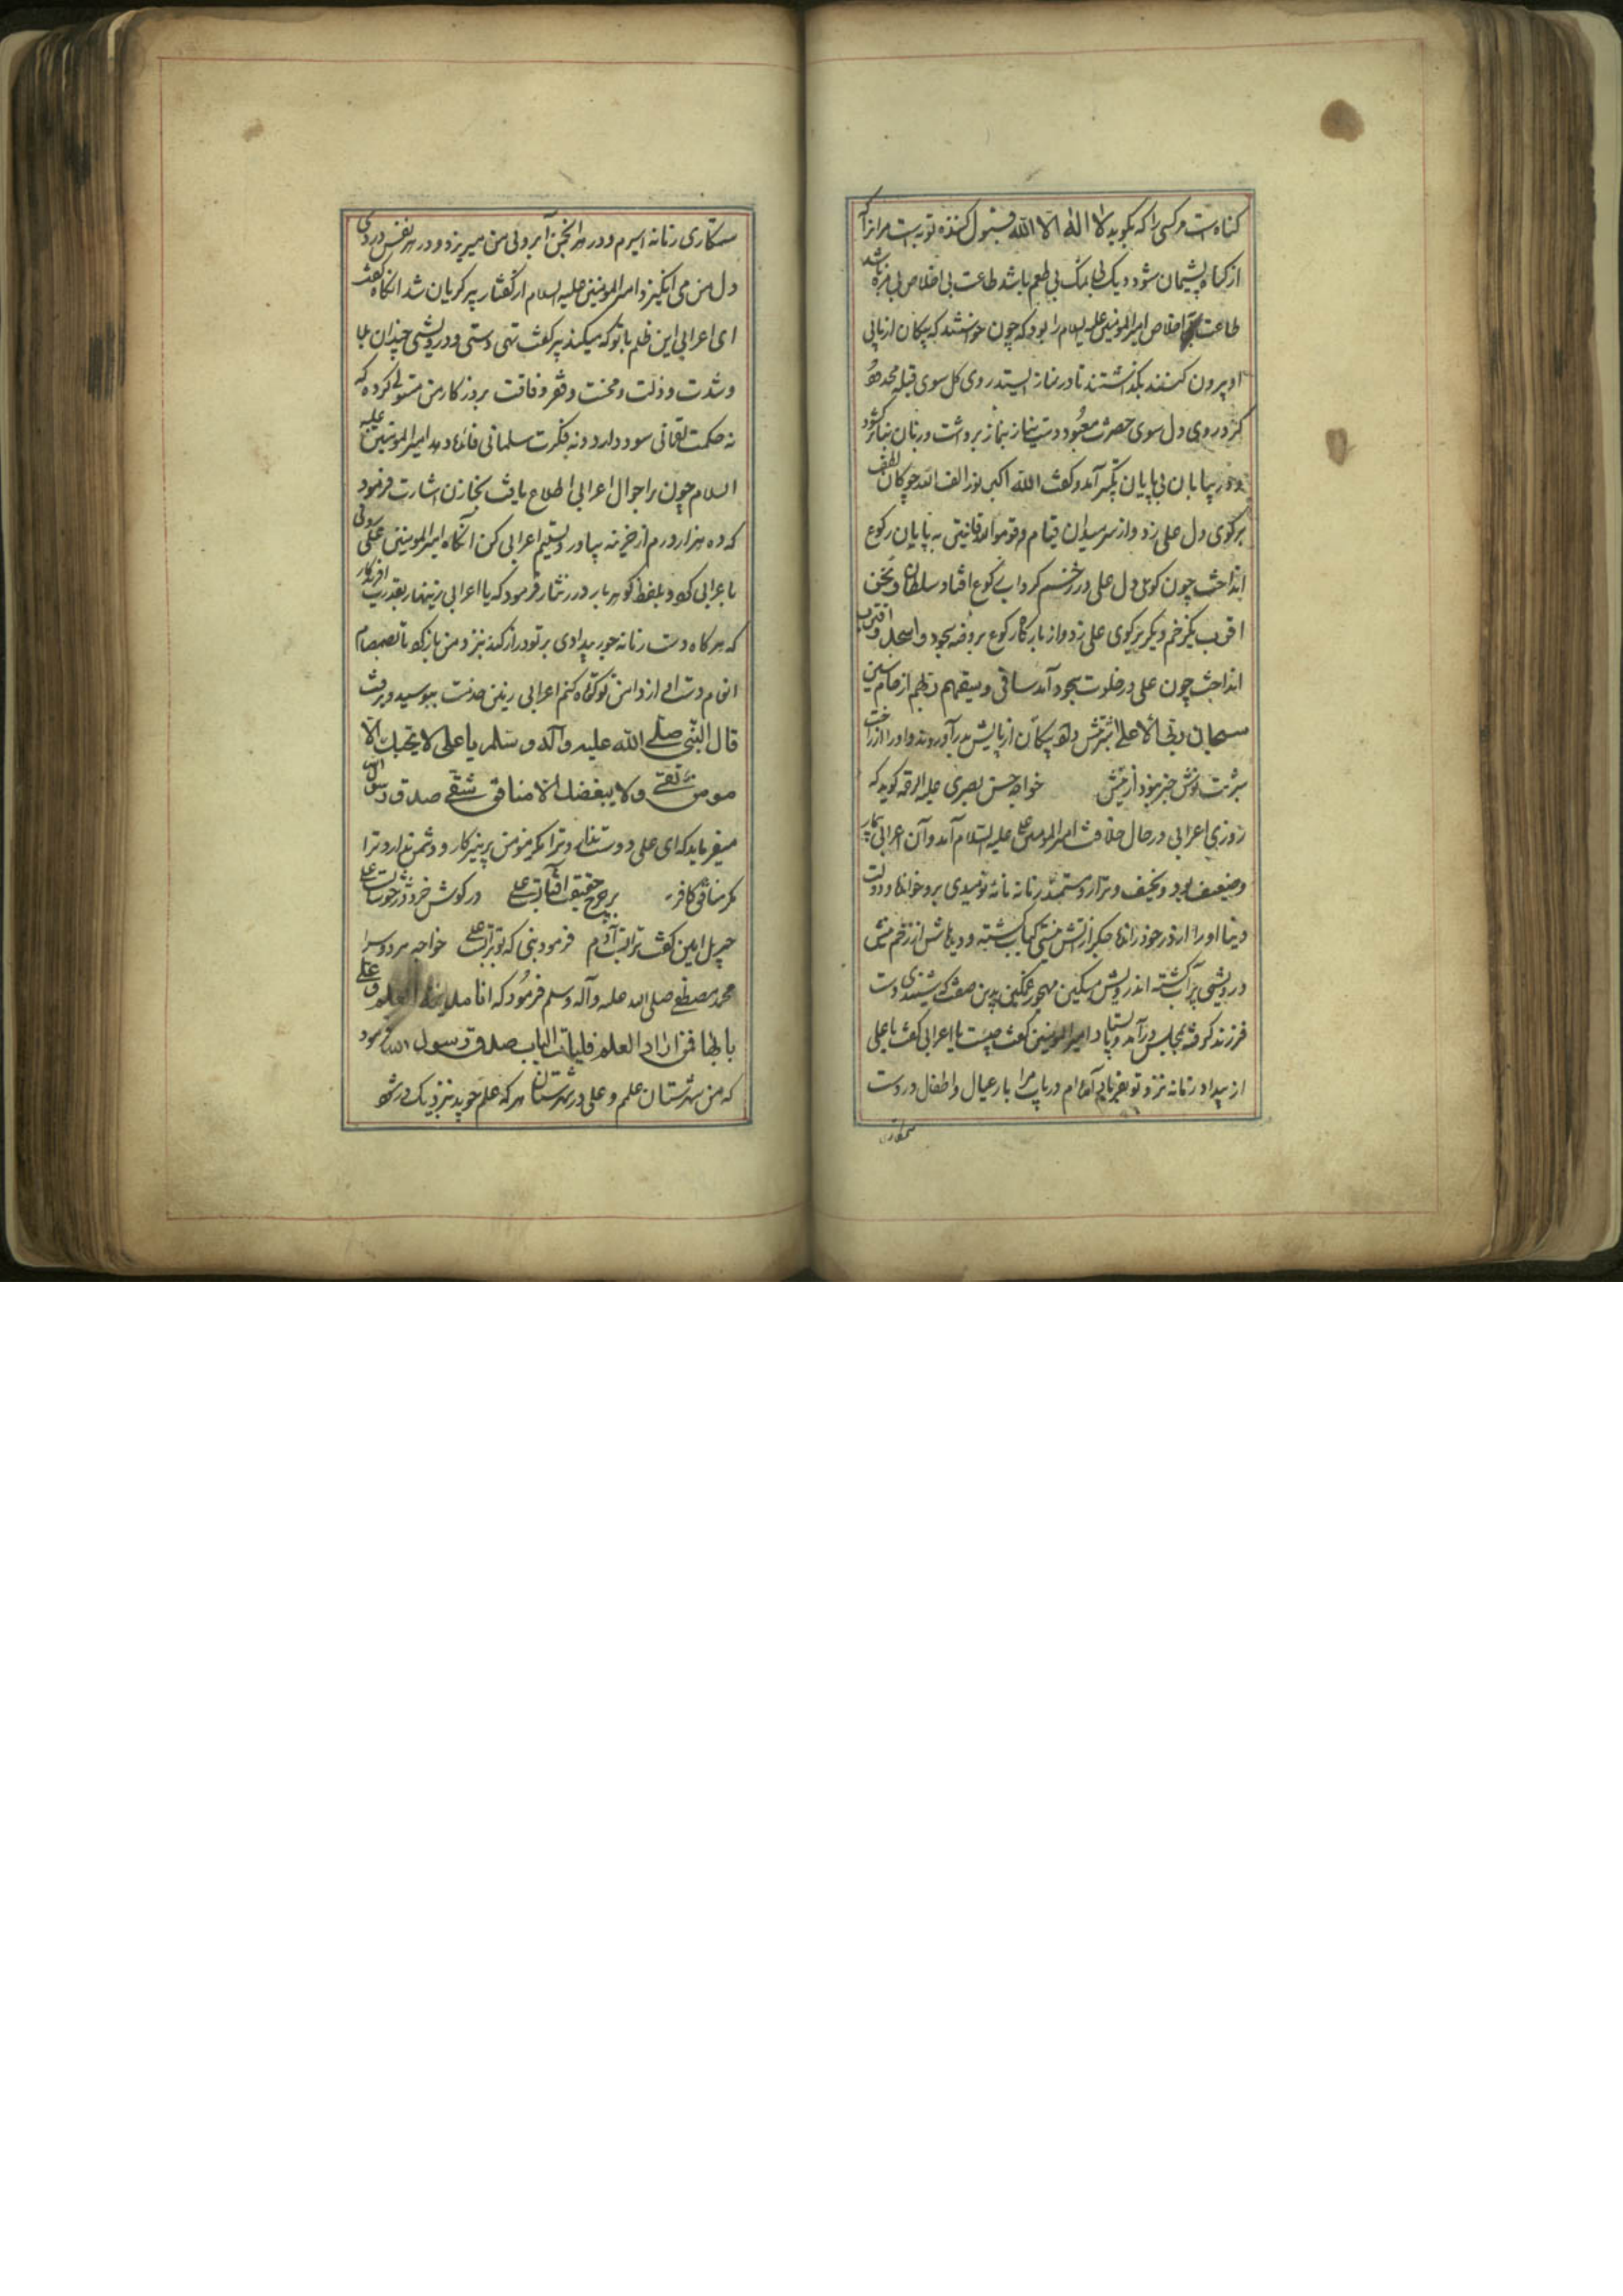 کناه است مر کسی را که بکوید لا اله الا الله و قبول کننده توبه است مر انرا که
از کناه پشیمان شود و دیک بی نمک بی طعم باشد طاعت بی اخلاص بی مزه باشد
طاعت با اخلاص امیرالمومنین علی علیه السلام را بود که چون خواستند که پیکان از پای
او بیرون کنند بکذاشتند تا در نماز ایستد روی کل سوی قبله محمد
کرد و روی دل سوی حضرت معبود دست نیاز بنماز برداشت و زبان نیاز کشود
و در بیابان بی پایان تکبیر آمد و کفت الله اکبر چوکان لطف
بر کوی دل علی زد و از سر میدان قیام و قوموا لله قانتین به پایان رکوع
انداخت چون کوی دل علی در رکوع افتاد سلطان و نحن
اقرب یکزخم دیکر بر کوی علی زد و از بارکاه رکوع بروضه سجود و اسجد و اقترب
انداخت چون علی در خلوت سجود آمد ساقی و سقیهم ربهم از جام
سبحان ربی الاعلی شربتش داد پیکان از پایش بدر آوردند و او را از راحت
شربت نوش خبر نبود از نیش خواجه حسن بصری علیه الرحمه کوید که
روزی اعرابی در حال خلافت امیرالمومنین علی علیه السلام آمد و آن اعرابی بیمار
و ضعیف بود و نحیف و نزار و مستمند زمانه نامه نومیدی برو خوانده و دولت
دنیا او را از در خود رانده جکر از آتش نیستی کباب کشته و دیدهاش از زخم نیش
درویشی پر آب کشته اندر ویش مسکین مهجور غمکین بدین صفت که شنیدی دست
فرزند کرفته بمجلس در آمد و بایستاد امیرالمومنین کفت چیست یا اعرابی کفت یا علی
از بیداد زمانه نزد تو بفریاد آمده ام دریاب مرا بار عیال و اطفال و در دست
ستمکاری
ستمکاری زمانه اسیرم و در هر انجمن آبروی من میریزد و در هر نفس دردی
دل من می انکیزد امیرالمومنین علیه السلام از کفتار پیر کریان شد انکاه کفت
ای اعرابی این ظلم با تو که میکند پیر کفت تهی دستی و درویشی چندان بلا
و شدت و ذلت و محنت و فقر و فاقت بروزکار من مستولی کرده که
نه حکمت لقمانی سود دارد و نه فکرت سلمانی فائده دهد امیرالمومنین علیه
السلام چون بر احوال اعرابی اطلاع یافت بخازن اشارت فرمود
که ده هزار درم از خزینه بیاور و تسلیم اعرابی کن آنکاه امیرالمومنین علی روی
با عرابی کرد و بلفظ کوهر بار درر نثار فرمود که یا اعرابی زینهار بقدرت آفریدکار
که هر کاه دست زمانه جور بیدادی بر تو دراز کند نزد من باز کرد تا بصمصام
انعام دست او از دامن تو کوتاه کنم اعرابی زمین خدمت ببوسید و برفت
قال النبی صلی الله علیه و آله و سلم یا علی لا یحبک الا
مومن تقی ولا یبغضک الا منافق شقی صدق رسول الله
میفرماید که ای علی دوست ندارد ترا مکر مومن پرهیزکار و دشمن ندارد ترا
مکر منافق کافر بر چرخ حقیقت آفتابست علی در کوش خرد در خوشابست علی
جبریل امین کفت ترابست آدم فرمود نبی که بوترابست علی خواجه هر دو سرا
محمد مصطفی صلی الله علیه و آله و سلم فرمود که انا مدینة العلم و علی
بابها فمن اراد العلم فلیات الباب صدق رسول الله فرمود
که من شهرستان علمم و علی در شهرستان هر که علم جوید نزدیک در شود